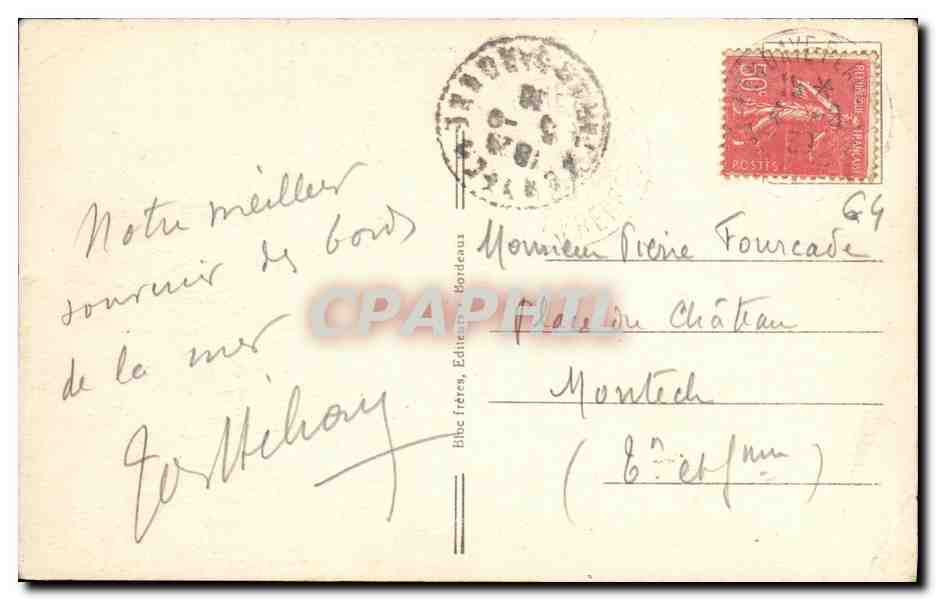 Notre meilleur
souvenir des bords
de la mer
Bloc frères, Editeurs - Bordeaux
50c
REPUBLIQUE FRANÇAISE
POSTES
64
Monsieur Pierre Fourcade
Place du Château
Montech
(Tn et Gnne)
CPAPHIL